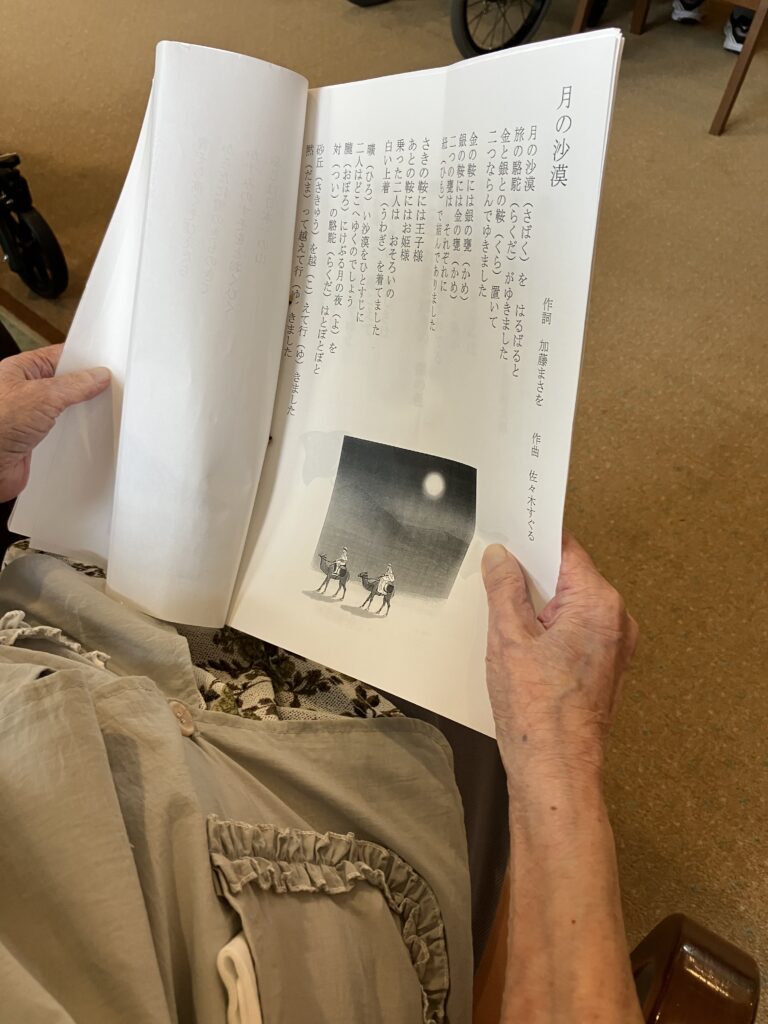 月の沙漠
作詞 加藤まさを 作曲 佐々木すぐる
月の沙漠（さばく）を はるばると
旅の駱駝（らくだ）がゆきました
金と銀との鞍（くら）置いて
二つならんでゆきました
金の鞍には銀の甕（かめ）
銀の鞍には金の甕（かめ）
二つの甕は それぞれに
紐（ひも）で結んでありました
さきの鞍には王子様
あとの鞍にはお姫様
乗った二人は おそろいの
白い上着（うわぎ）を着てました
曠（ひろ）い沙漠をひとすじに
二人はどこへゆくのでしょう
朧（おぼろ）にけぶる月の夜（よ）を
対（つい）の駱駝（らくだ）はとぼとぼと
砂丘（さきゅう）を越（こ）えて行（ゆ）きました
黙（だま）って越えて行（ゆ）きました